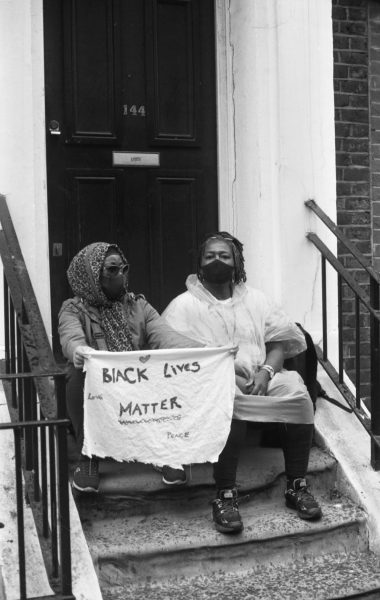 144
BLACK LIVES
LOVE
MATTER
PEACE